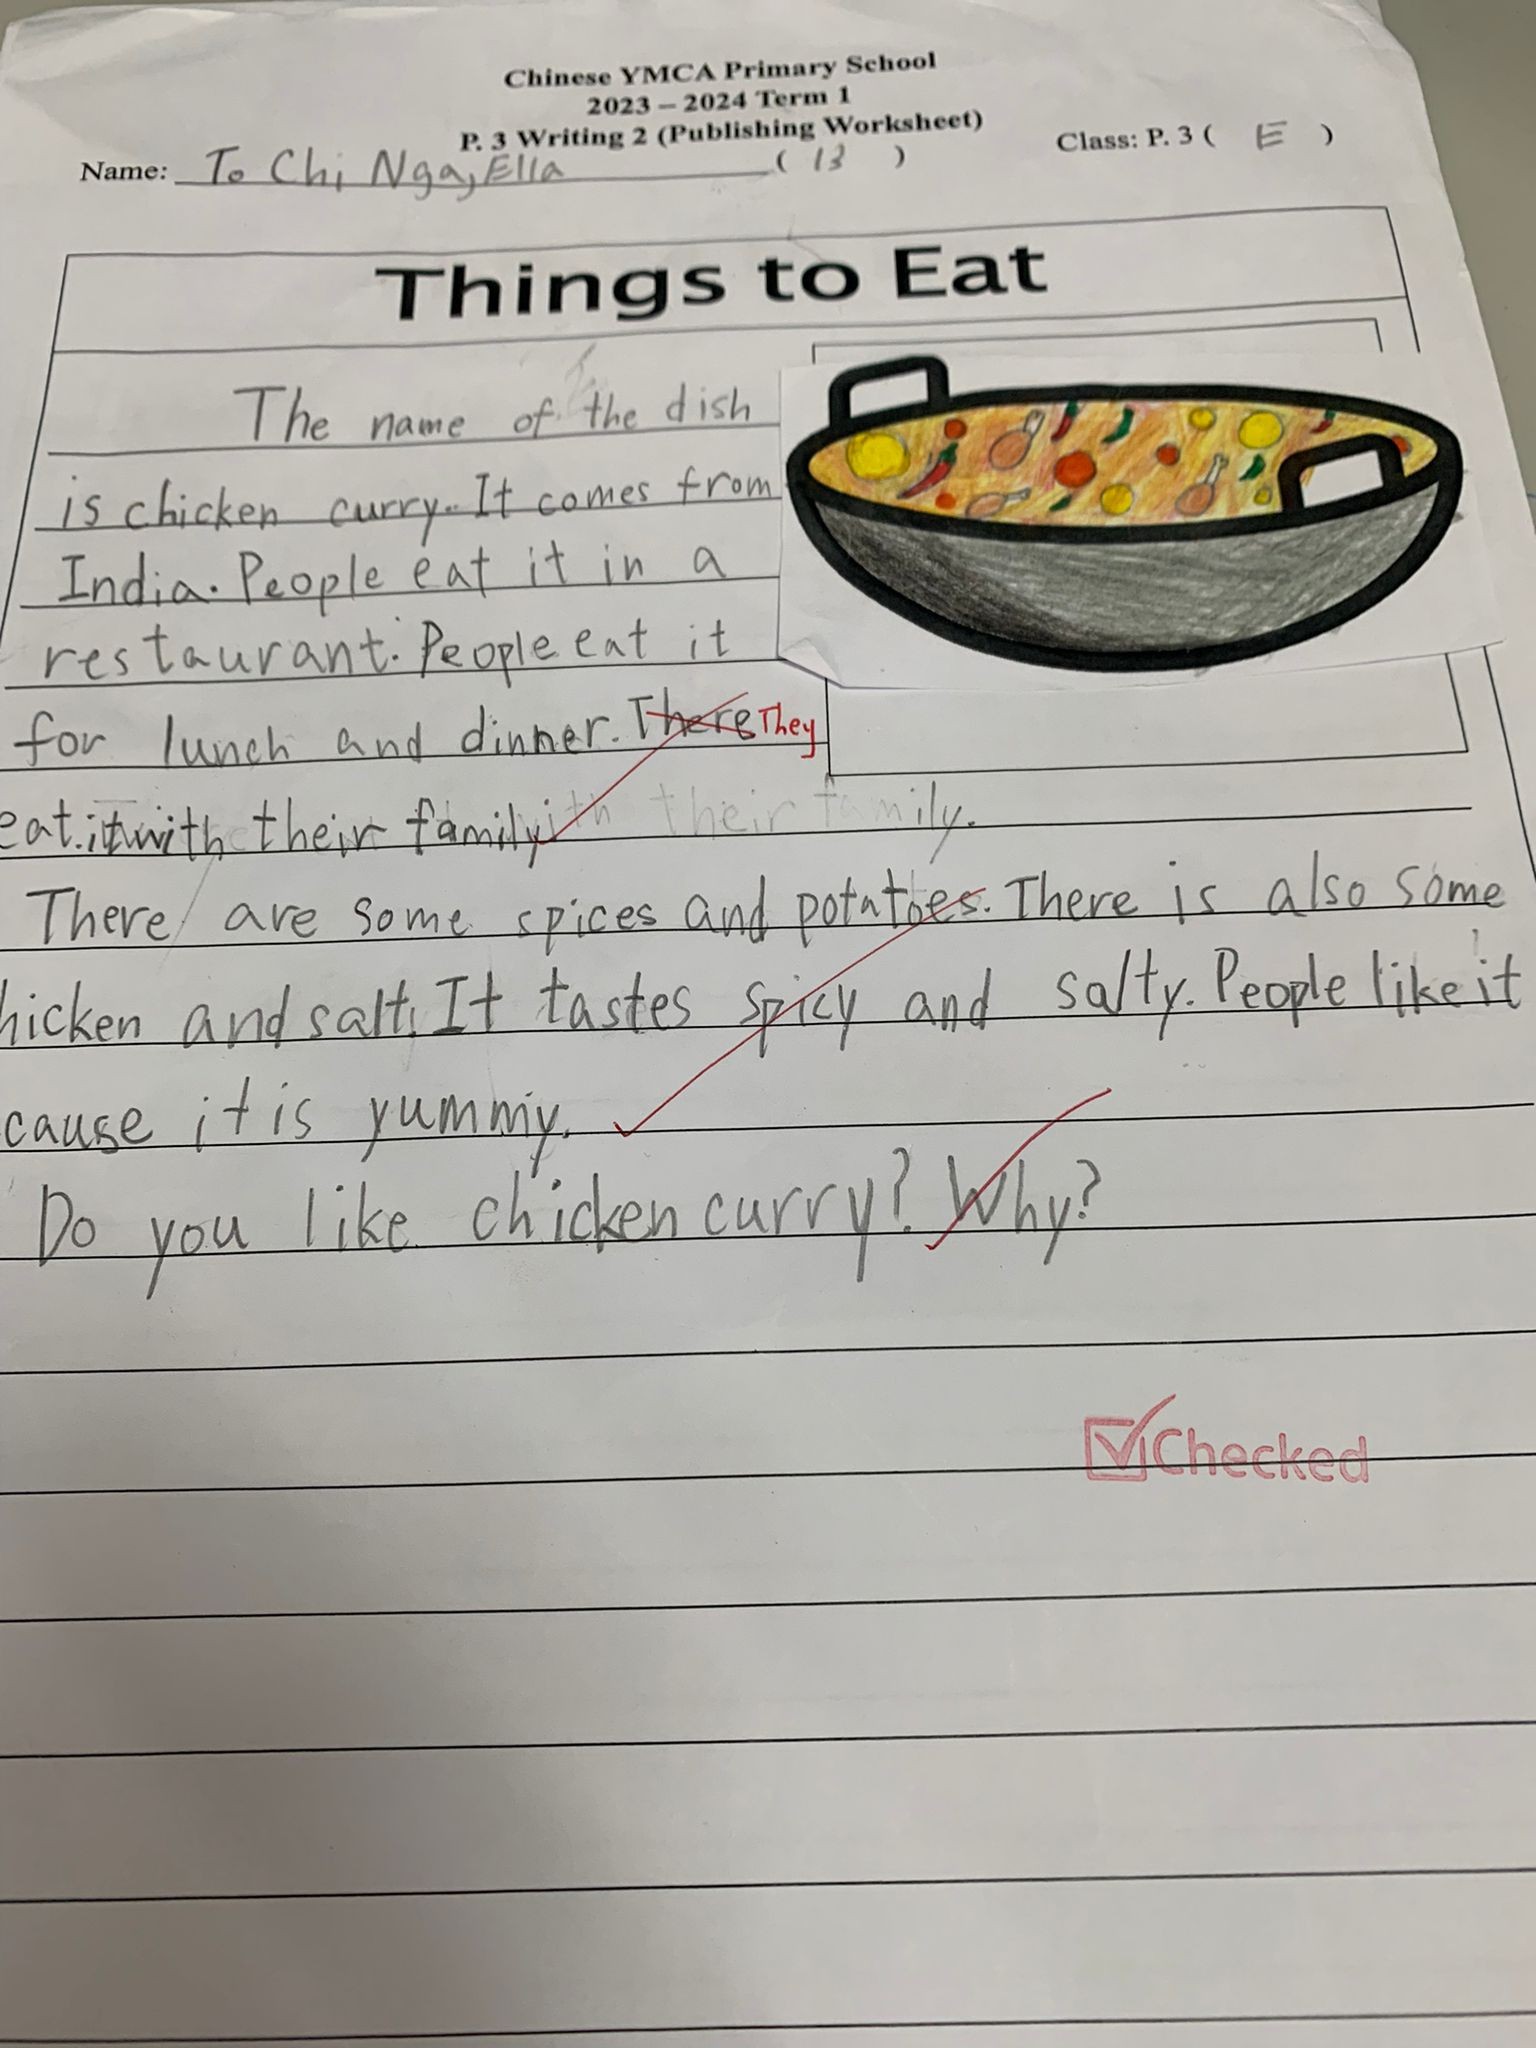 Chinese YMCA Primary School
2023 – 2024 Term 1
P. 3 Writing 2 (Publishing Worksheet)
Name: To Chi Nga, Ella ( 13 ) Class: P. 3 ( E )
Things to Eat
The name of the dish
is chicken curry. It comes from
India. People eat it in a
restaurant. People eat it
for lunch and dinner. There They
eat it with their family ith their family.
There are some spices and potatoes. There is also some
hicken and salt. It tastes spicy and salty. People like it
cause it is yummy.
Do you like chicken curry? Why?
Checked